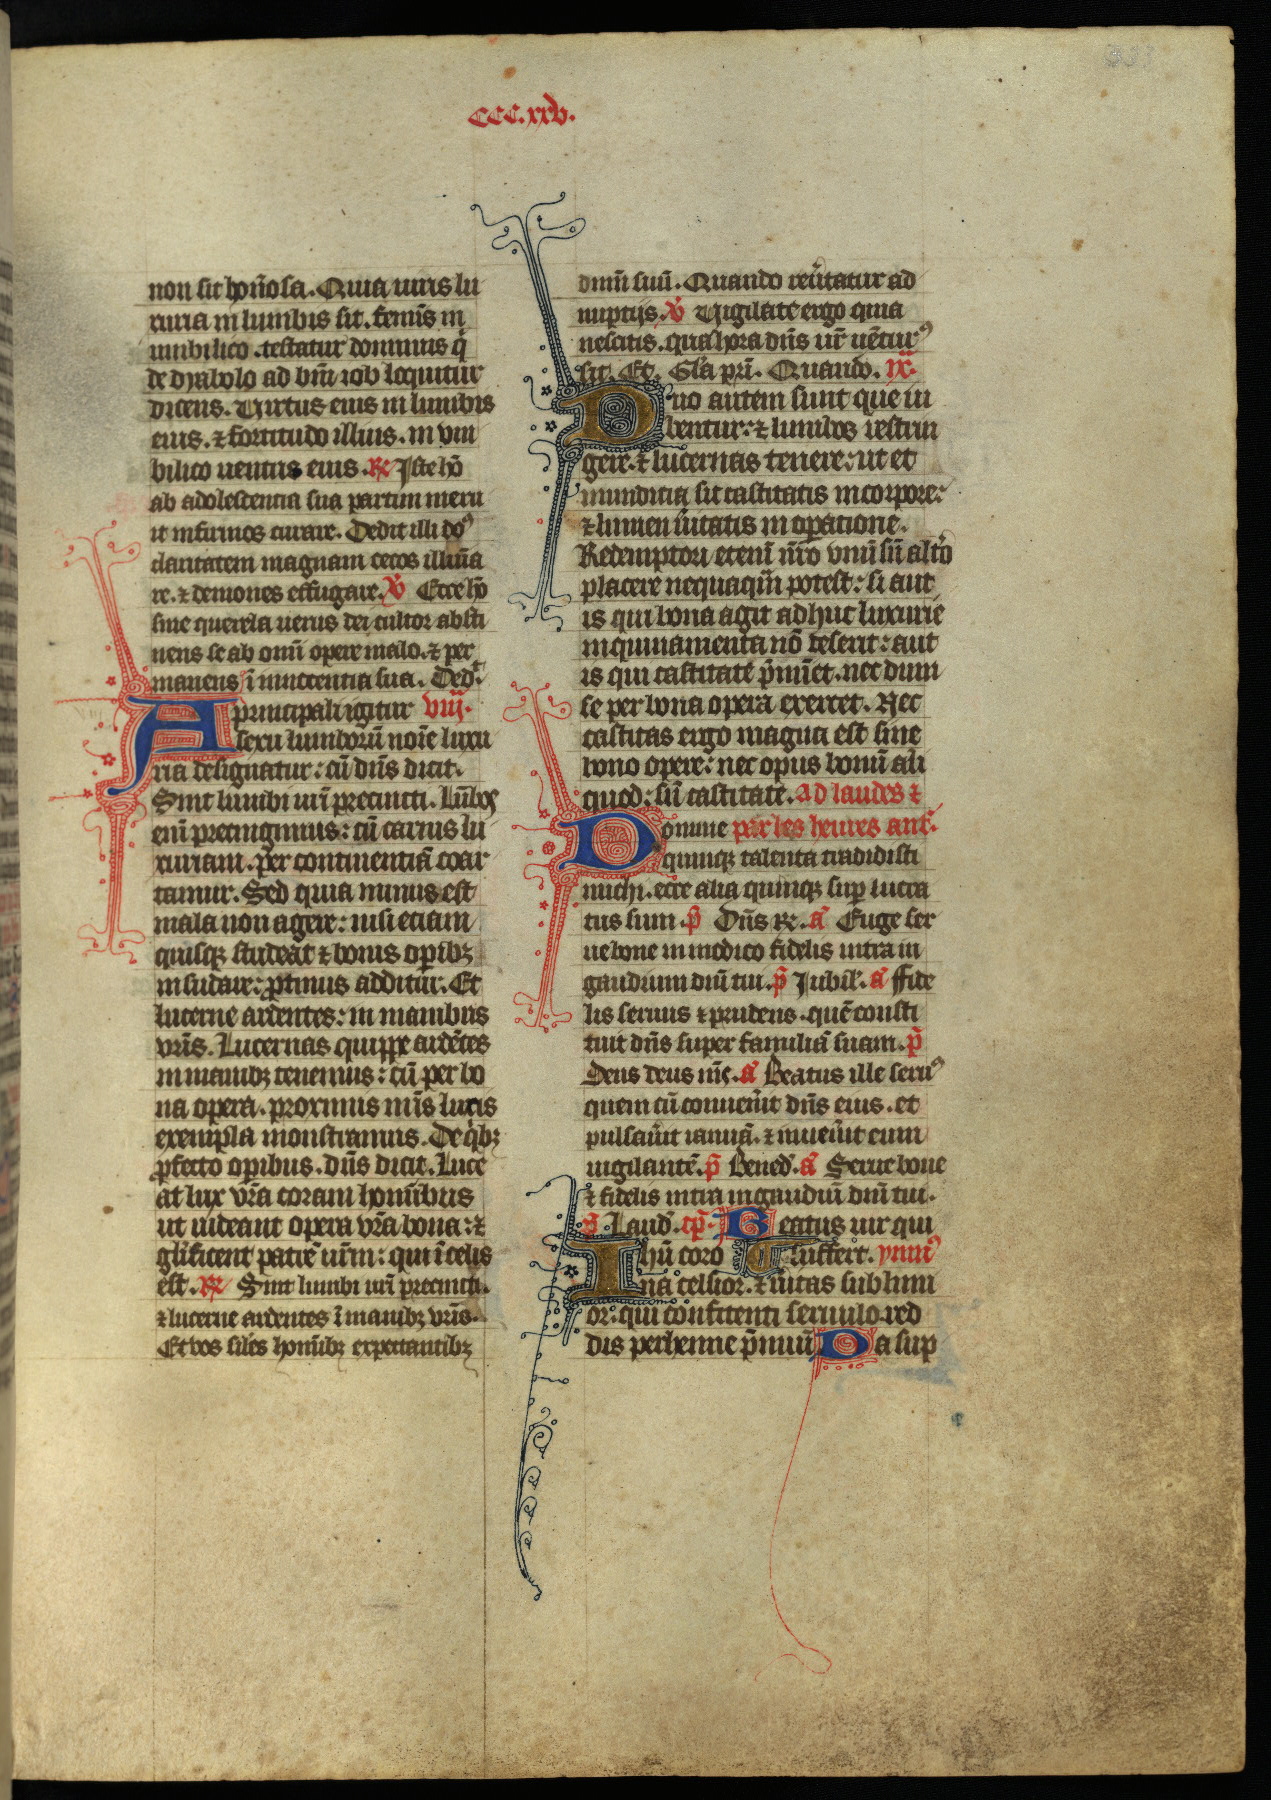 CCC.xxv.
non sit honor̄osa. Quia uiris lu
xuria in lumbis sit. femīs in
umbilico. testatur dominus q̇
de dyabolo ad bm̄ iob loquitur
dicens. Uirtus eius in lumbis
eius. ⁊ fortitudo illius. in vm
bilico uentris eius. R̷ Iste hō
ab adolescentia sua partim meru
it infirmos curare. Dedit illi dōꝰ
claritatem magnam cecos illūa
re. ⁊ demones effugare. V̷ Ecce hō
sine querela uerus dei cultor absti
nens se ab omī opere malo. ⁊ per
manens ī innocentia sua. Ded̄.
A principali igitur viij.
sexu lumborū noīe luxu
ria designatur: cū dn̄s dicit.
Sint lumbi urī precincti. Lūbos
enī precingimus: cū carnis lu
xuriam. per continentiā coar
tamur. Sed quia minus est
mala non agere: nisi etiam
quisqꝫ studeat ⁊ bonis opibꝫ
insudare: ꝓtinus additur. Et
lucerne ardentes: in manibus
vrīs. Lucernas quippe ardētes
in manibꝫ tenemus: cū per bo
na opera. proximus nrīs lucis
exempla monstramus. De q̇bꝫ
ꝓfecto opibus. dn̄s dicit. Luce
at lux vrā coram hom̄ibus
ut uideant opera vrā bona: ⁊
glīficent patrē urm̄: qui ī celis
est. R̷ Sint lumbi urī precincti.
⁊ lucerne ardentes ī manibꝫ vrīs.
Et vos silēs hom̄ibꝫ expectantibꝫ
dnm̄ suū. Quando reūtatur ad
nuptijs. V̷ Uigilate ergo quia
nescitis. qua hora dn̄s ur̄ uētur̄ꝰ
sit. Et. Glā prī. Quando. ix.
Duo autem sunt que iu
bentur: ⁊ lumbos restrin
gere. ⁊ lucernas tenere: ut et
munditia sit castitatis in corpore:
⁊ lumen ūitatis in oꝑatione.
Redemptori etenī nrō vnū sn̄ alt̄o
placere nequaqm̄ potest: si aut
is qui bona agit adhuc luxurie
inquinamenta nō deserit: aut
is qui castitate p̄mīet. nec dum
se per bona opera exercet. Nec
castitas ergo magna est sine
bono opere: nec opus bonū ali
quod: sn̄ castitate. Ad laudes ⁊
Domine par les heures ant̄.
quinqꝫ talenta tradidisti
michi. ecce alia quinqꝫ suꝑ lucra
tus sum. p̄ Dn̄s R̷. a̅ Euge ser
ue bone in modico fidelis intra in
gaudium dnī tui. p̄ Iubil̄. a̅ Fide
lis seruus ⁊ prudens. quē consti
tuit dn̄s super familiā suam. p̄
Deus deus m̄s. a̅ Beatus ille seruꝰ
quem cū conuen̄it dn̄s eius. et
pulsau̅it ianuā. ⁊ inuen̄it eum
uigilantē. p̄ Bened̄. a̅ Serue bone
⁊ fidelis intra in gaudiū dnī tui.
p̄ Laud̄. cp̄. Beatus uir qui
Ihū coro Tsuffert. ymnꝰ
na celsior. ⁊ ūitas sublimi
or: qui confitenti seruulo red
dis perhenne p̄miū Da sup